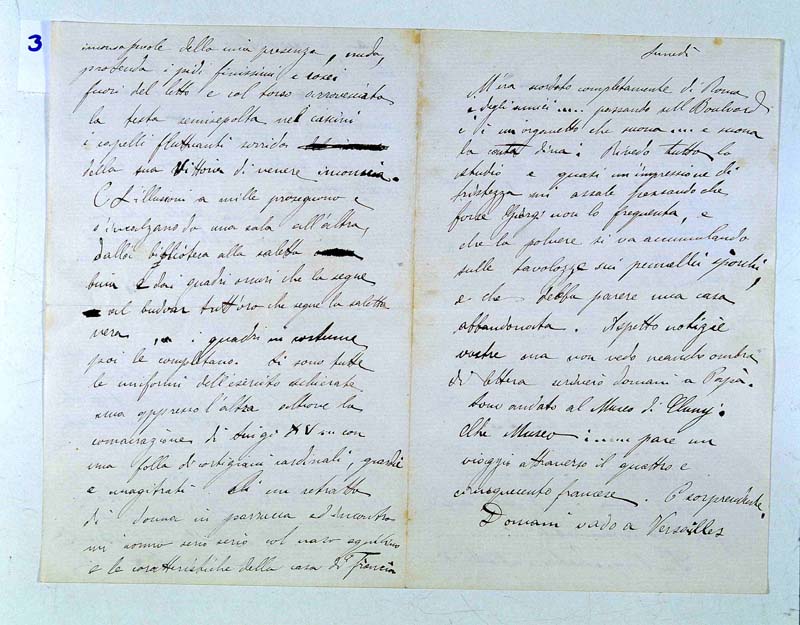 3
inconsapevole della mia presenza, nuda,
protenda i piedi finissimi e rosei
fuori del letto e col torso arrovesciato
la testa semisepolta nei cuscini
i capelli fluttuanti sorrida
della sua vittoria di venere inconscia.
E L'illusioni a mille proseguono e
s'incalzano da una sala all'altra,
dalla biblioteca alla saletta
buia e dai quadri oscuri che la segue
al budoar tutt'oro che segue la saletta
nera, i quadri in costume
poi le completano. Ci sono tutte
le uniformi dell'esercito schierate
una appresso l'altra
di Luigi XV con
una folla di cortigiani cardinali, guardie
e magistrati un ritratto
di donna in parrucca ed incontro
un uomo serio serio col naso aquilino
e le caratteristiche della casa di Francia
Lunedì
M'era scordato completamente di Roma
e degli amici .... passando sul Boulevard
c'è un organetto che suona ... e suona
la Rivedo tutto lo
studio e quasi un'impressione di
tristezza mi assale pensando che
forse Giorgi non lo frequenta, e
che la polvere si va accumulando
sulle tavolozze sui pennelli sporchi,
e che debba parere una casa
abbandonata. Aspetto notizie
vostre ma non vedo neanche ombra
di lettera scriverò domani a Papà.
Sono andato al Museo di Cluny.
Che Museo ...... pare un
viaggio attraverso il quattro e
cinquecento francese. È sorprendente.
Domani vado a Versailles